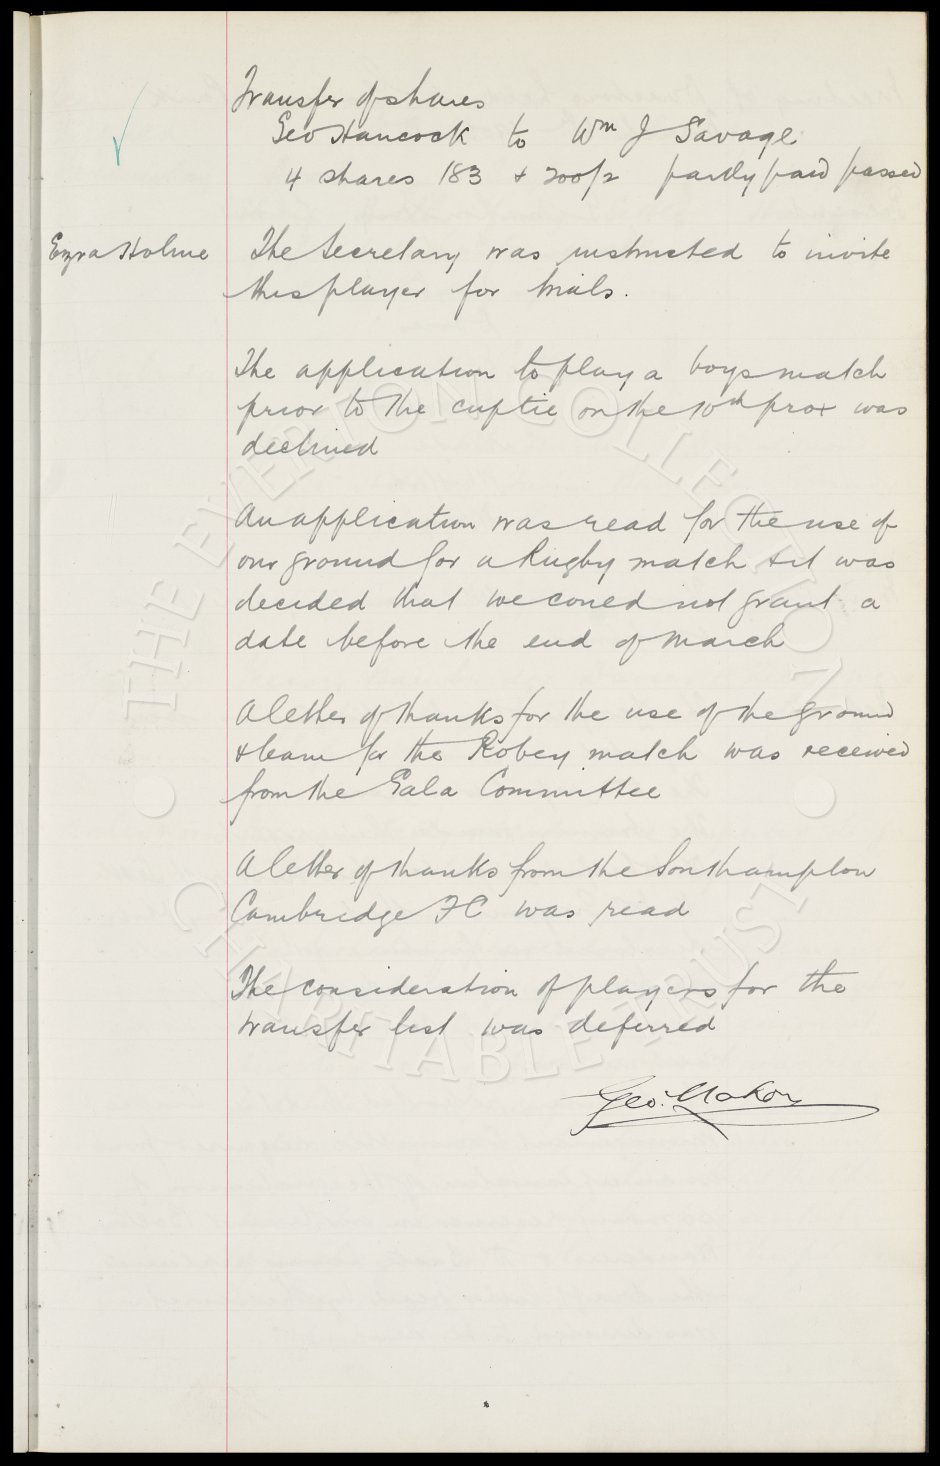 Transfer of shares
Geo Hancock to Wm J Savage
4 shares 183 & 200/2 partly paid passed
Ezra Holme
The Secretary was instructed to invite
this player for trials.
The application to play a boys match
prior to the cuptie on the 10th prox was
declined
An application was read for the use of
our ground for a Rugby match & it was
decided that we could not grant a
date before the end of March
A letter of thanks for the use of the ground
& team for the Robey match was received
from the Gala Committee
A letter of thanks from the Southampton
Cambridge FC was read
The consideration of players for the
transfer list was deferred
Geo. Mahon
THE EVERTON COLLECTION
CHARITABLE TRUST